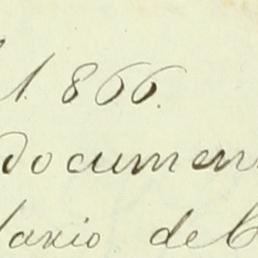 1.866.
documen
lario de C